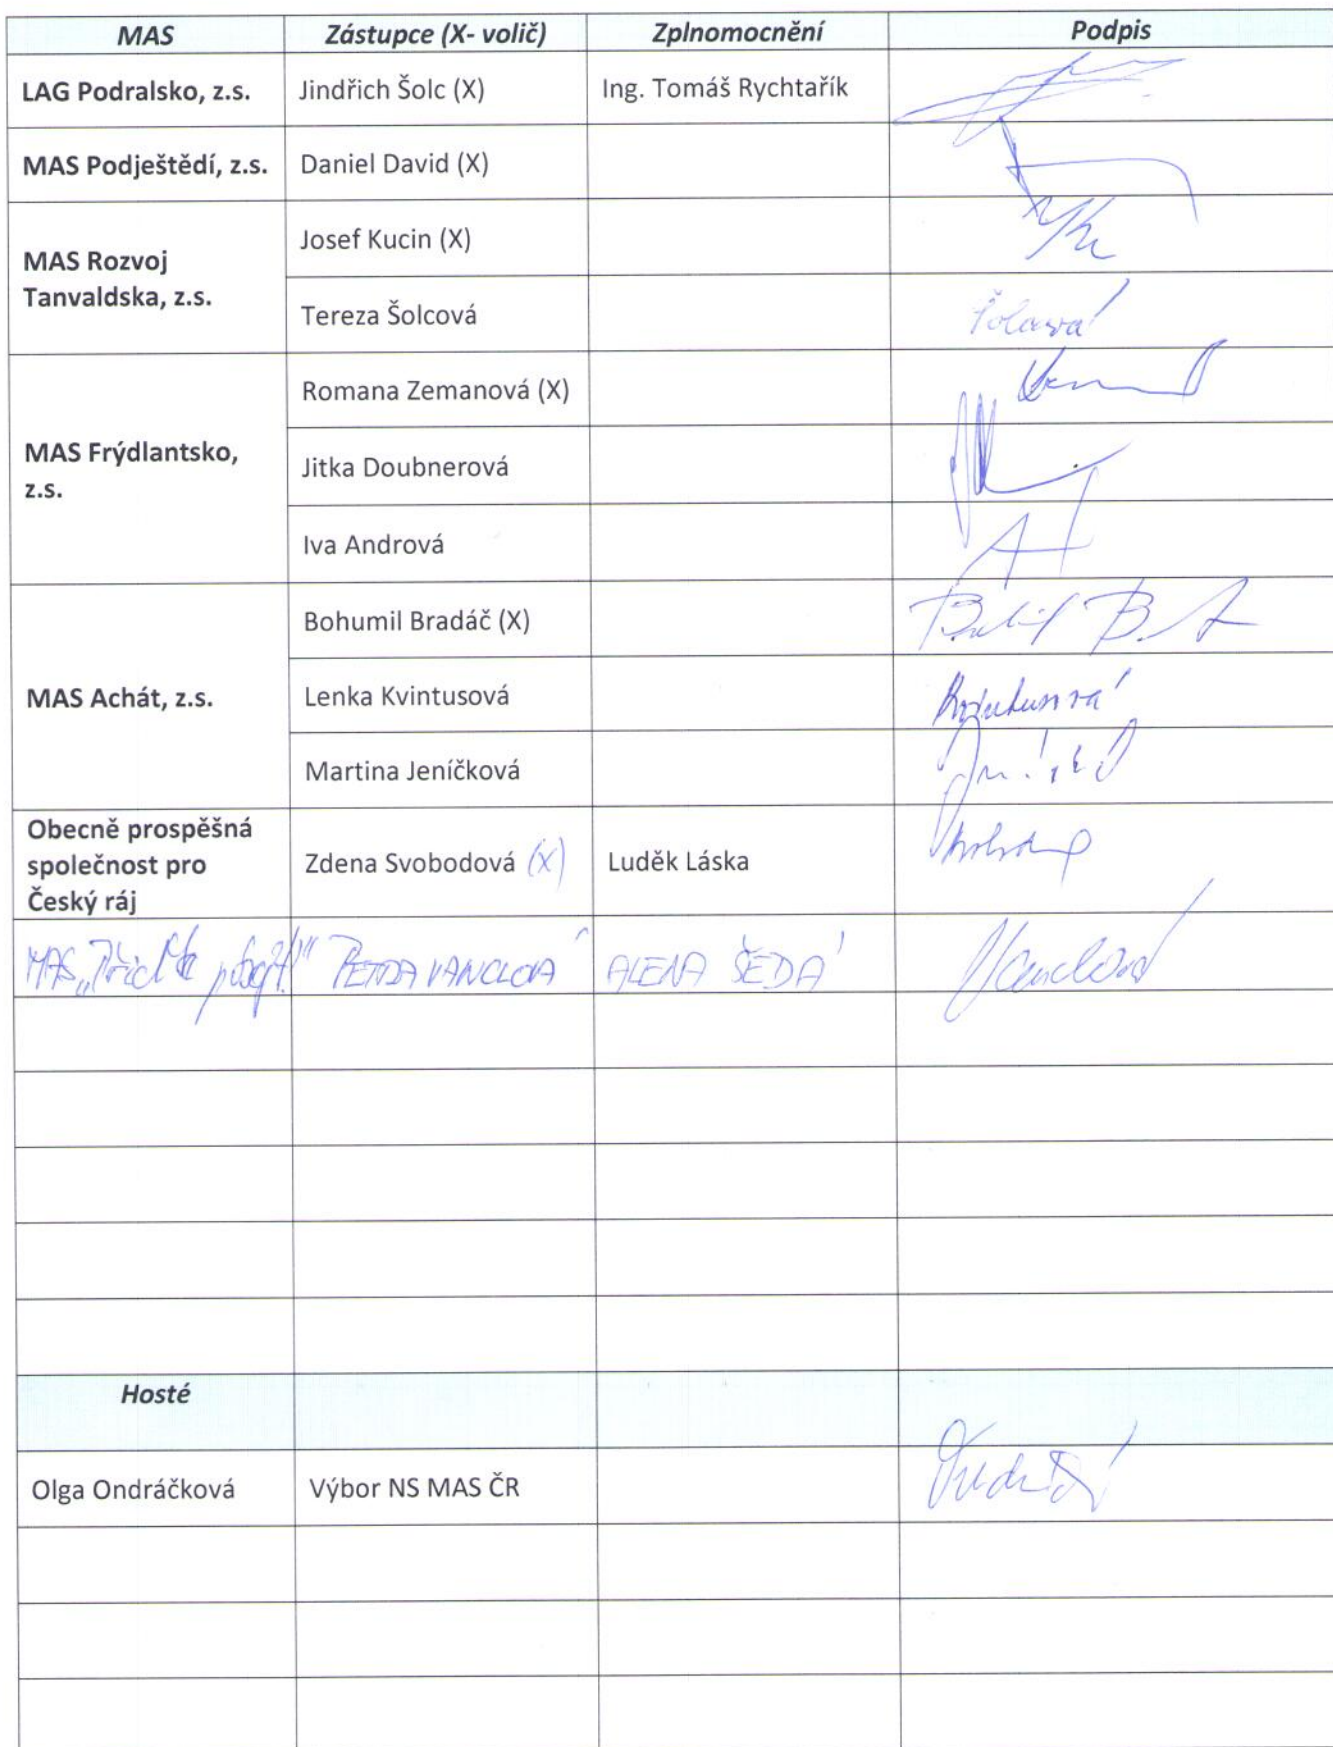 MAS Zástupce (X- volič) Zplnomocnění Podpis
LAG Podralsko, z.s. Jindřich Šolc (X) Ing. Tomáš Rychtařík
MAS Podještědí, z.s. Daniel David (X)
MAS Rozvoj
Tanvaldska, z.s.
Josef Kucin (X)
Tereza Šolcová Šolcová
MAS Frýdlantsko,
z.s.
Romana Zemanová (X)
Jitka Doubnerová
Iva Andrová
MAS Achát, z.s.
Bohumil Bradáč (X)
Lenka Kvintusová Kvintusová
Martina Jeníčková
Obecně prospěšná
společnost pro
Český ráj
Zdena Svobodová (X) Luděk Láska
MAS PETRA VANCLOVÁ ALENA ŠEDÁ Vanclová
Hosté
Olga Ondráčková Výbor NS MAS ČR